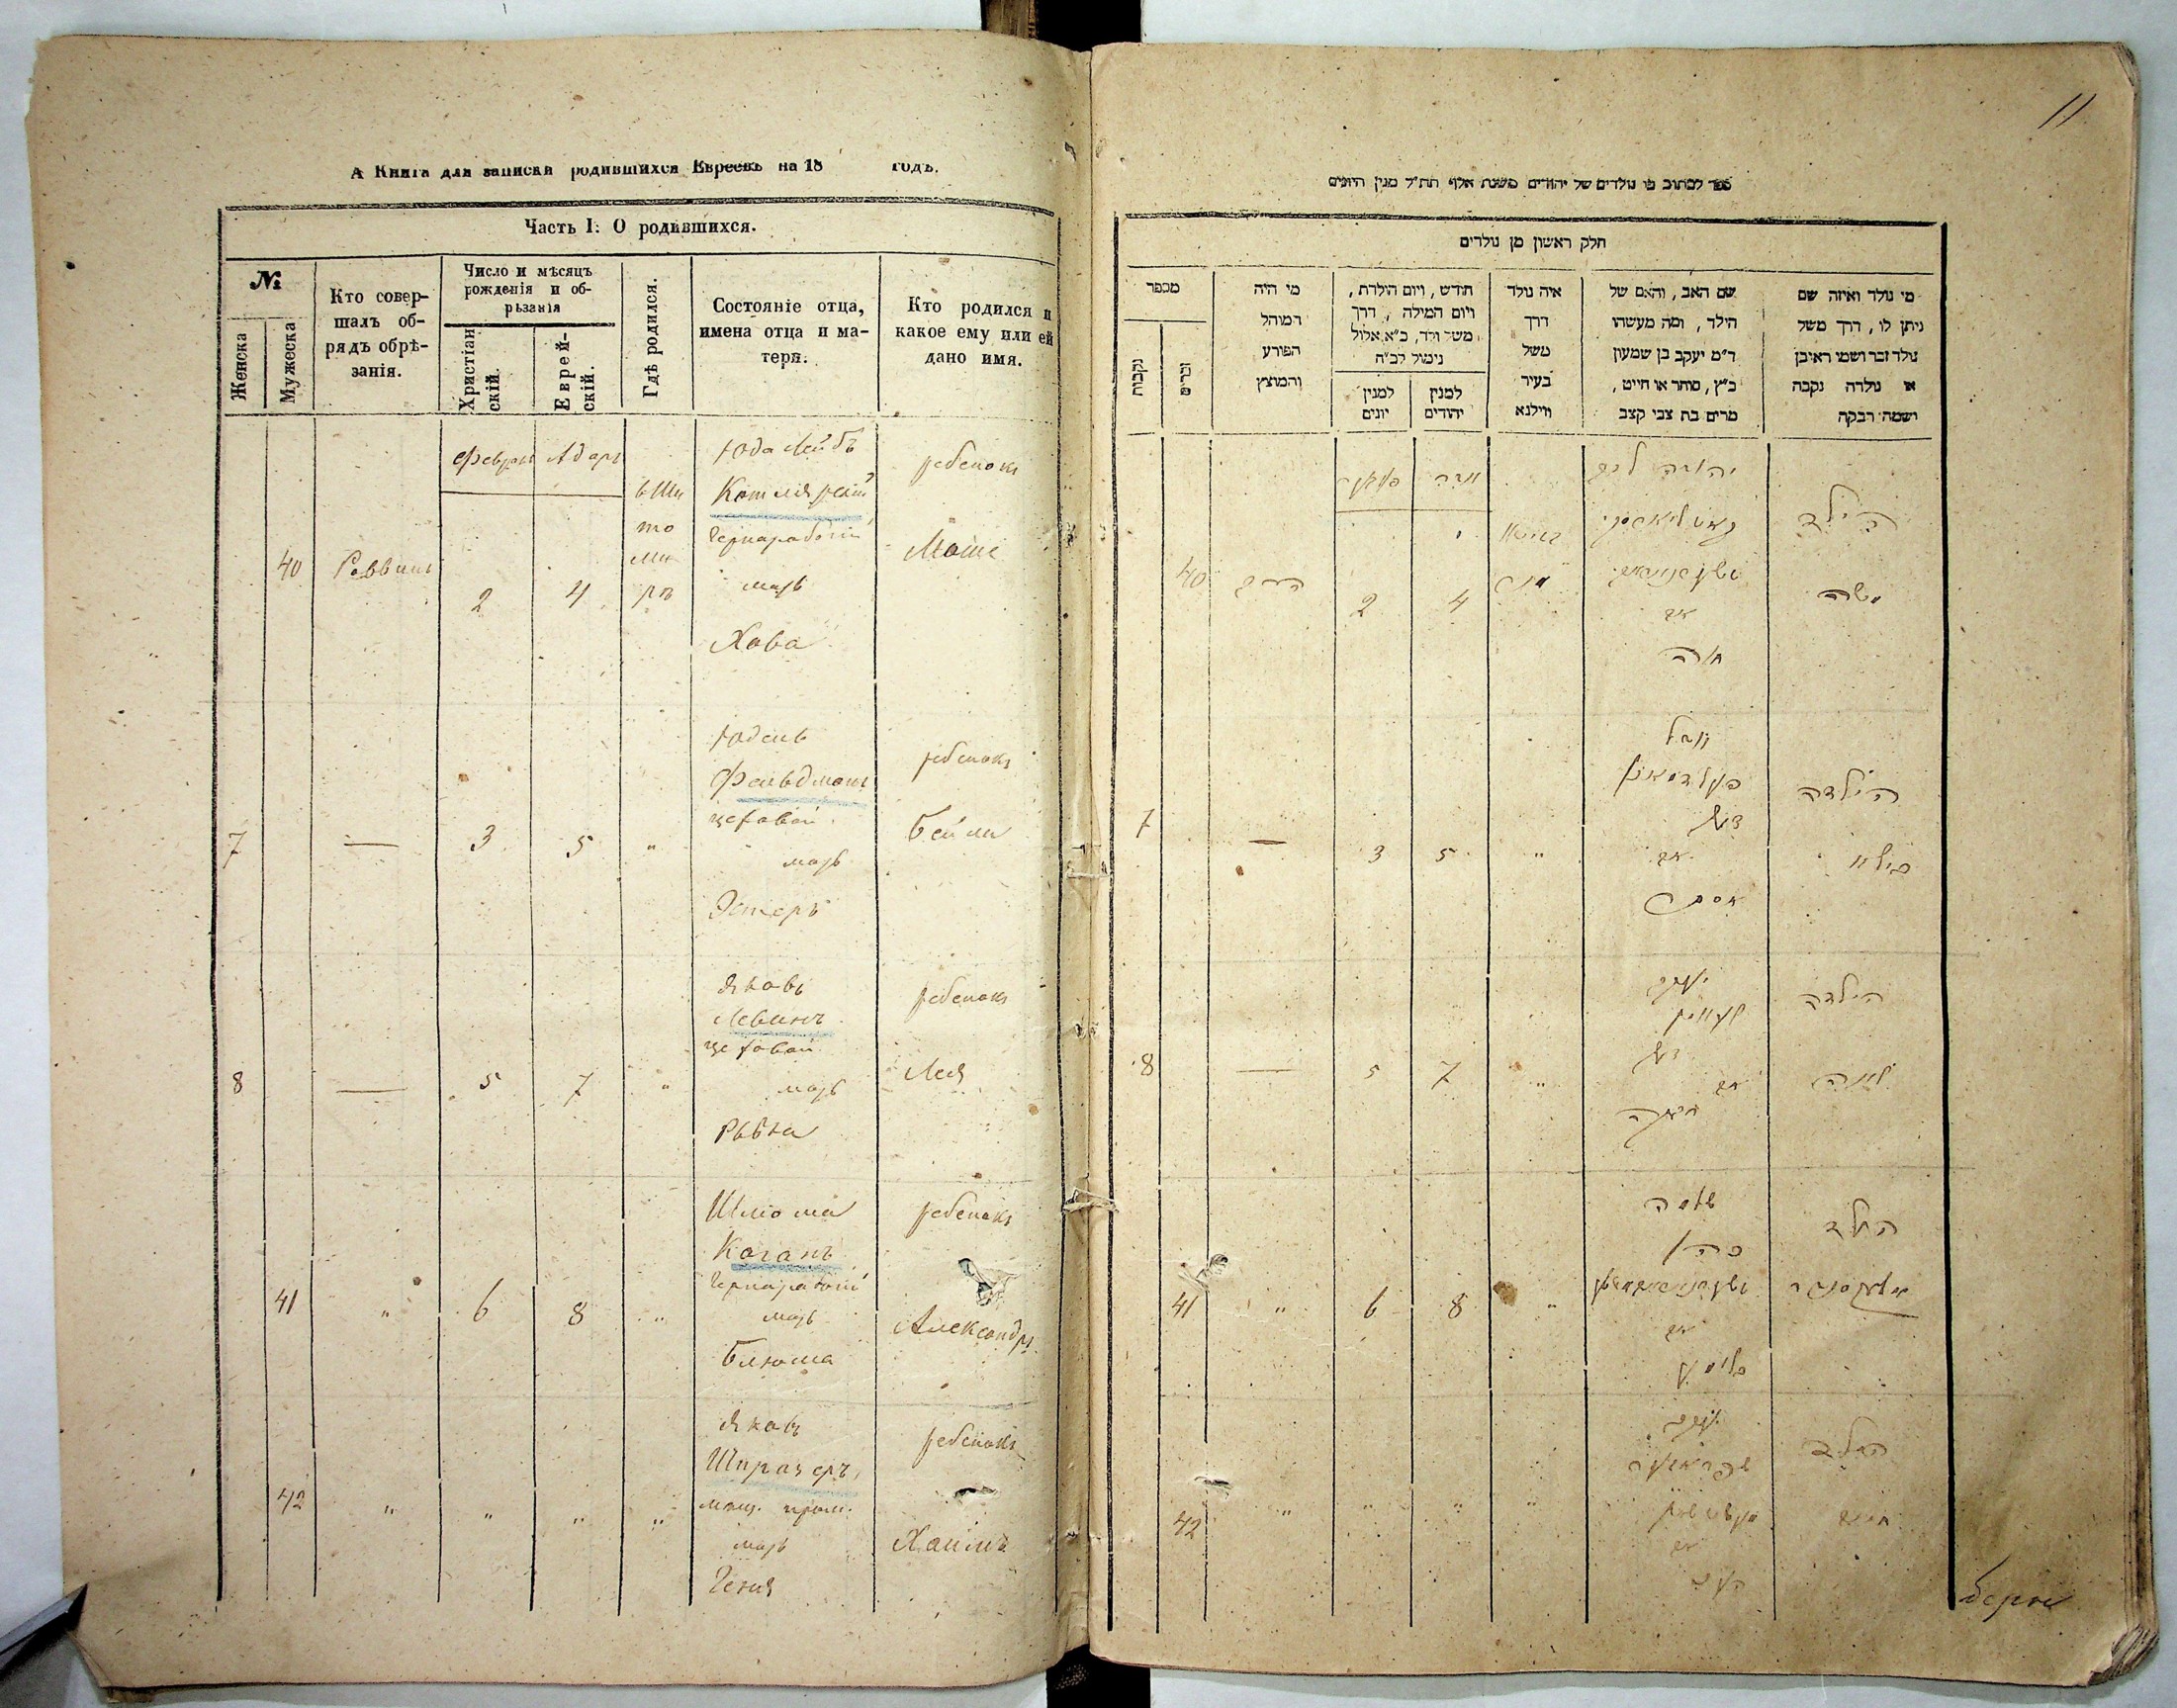 А Книга для записки родившихся Евреевъ на 18 годъ.
Часть I. О родившихся.
№
Женска
Мужеска
Кто совер-
шалъ об-
рядъ обрѣ-
занія.
Число и мѣсяцъ
рожденія и об-
рѣзанія
Христіан
скій.
Еврей-
скій.
Гдѣ родился.
Состояніе отца,
имена отца и ма-
тери.
Кто родился и
какое ему или ей
дано имя.
40
Раввинъ
Феврал
2
Адаръ
4
въ Жи
то
ми
рѣ
Юда Лейбъ
Котлярскій
Чернорабочій
мать
Хава
ребенокъ
Моше
7
—
3
5
"
Юдель
Фельдманъ
цеховой
мать
Эстеръ
ребенокъ
Бейла
8
—
5
7
"
Яковъ
Левинъ
цеховой
мать
Ривка
ребенокъ
Лея
41
"
6
8
"
Шлиома
Коганъ
Чернорабочій
мать
Блюма
ребенокъ
Александръ
42
"
"
"
"
Яковъ
мать
Геня
ребенокъ
Хаимъ
11
ספר לכתוב בו נולדים של יהודים משנת אלף תת״ל מנין היונים
חלק ראשון מן נולדים
מספר
נקבות
זכרים
מי היה
המוהל
הפורע
והמוצץ
חודש, ויום הולדת,
ויום המילה, דרך
משל ולד, כ״א אלול
נימול לכ״ח
למנין
יונים
למנין
יהודים
איה נולד
דרך
משל
בעיר
ווילנא
שם האב, והאם של
הילד, ומה מעשהו
ד״מ יעקב בן שמעון
כ״ץ, סוחר או חייט,
מרים בת צבי קצב
מי נולד ואיזה שם
ניתן לו, דרך משל
נולד זכר ושמו ראובן
או נולדה נקבה
ושמה רבקה
40
הרב
2
4
יהודה ליב
חוה
הילד
משה
7
—
3
5
"
יודל
פעלדמאן
אסתר
הילדה
ביילא
8
—
5
7
"
יעקב
לעווין
רבקה
הילדה
לאה
41
"
6
8
"
שלמה
כהן
בלומע
הילד
אלעקסנדר
42
"
"
"
"
יעקב
הילד
חיים